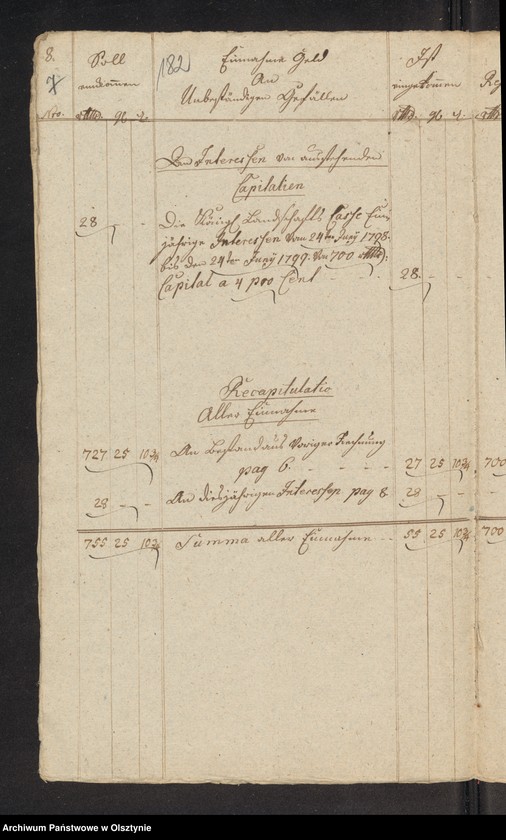 8.
7
182
Soll
einkom̄en
Einnahme Geld
An
Unbeständigen Gefällen
Ist
eingekom̄en
Nro.
An Interessen von ausstehenden
Capitalien
28 - -
Die Königl Landschafts Casse Ein-
jährige Interessen vom 24ten Juny 1798.
bis den 24ten Juny 1799. von 700
Capital a 4 pro Cent - - 28. - -
Recapitulatio
Aller Einnahme
727 25 10¾ An Bestand aus voriger Rechnung
pag 6. - - - - 27 25 10¾ 700
28 - - An diesjährigen Interessen pag 8 28 - -
755 25 10¾ Summa aller Einnahme - - 55 25 10¾ 700
Archiwum Państwowe w Olsztynie